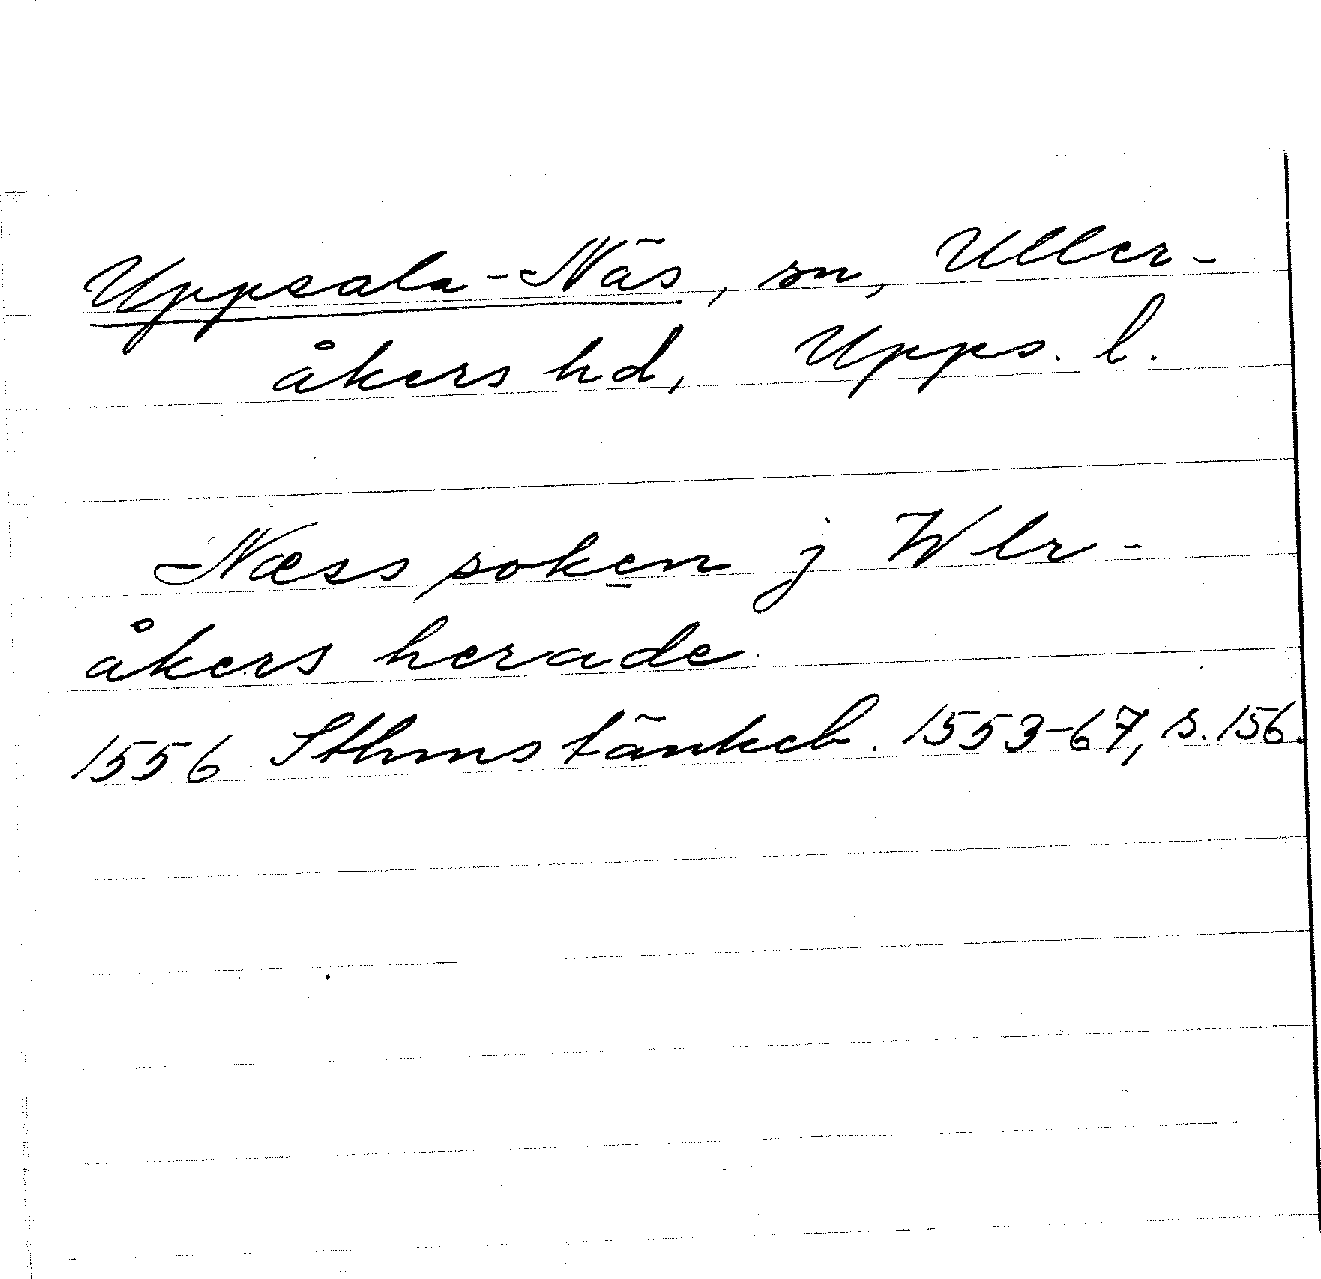 Uppsala-Näs, sn, Uller-
åkers hd, Upps. l.
Næss soken j Wlr-
åkers herade
1556 Sthms tänkeb. 1553-67, s. 156.